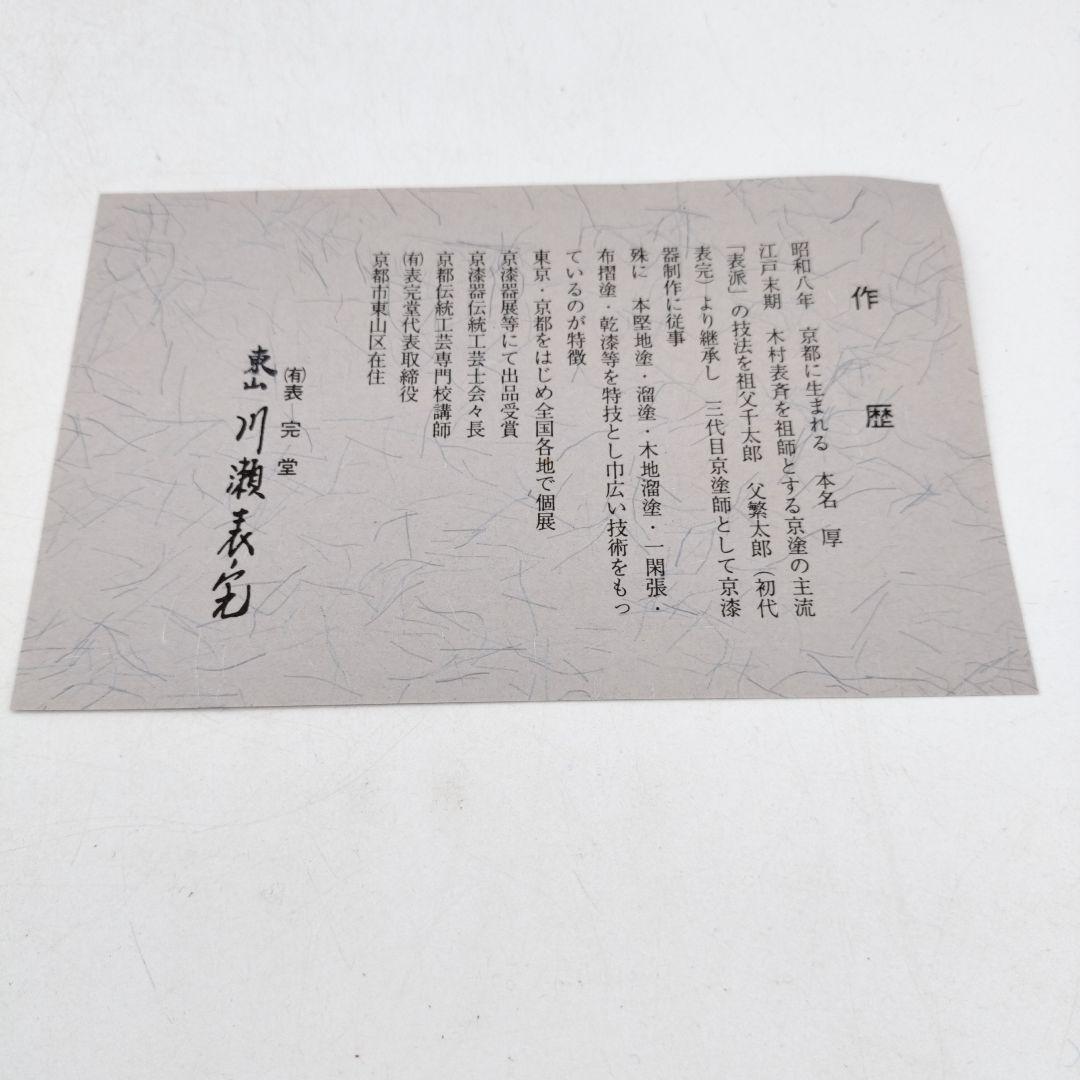 作歴
昭和八年　京都に生まれる　本名　厚
江戸末期　木村表斉を祖師とする京塗の主流
「表派」の技法を祖父千太郎　父繁太郎（初代
表完）より継承し　三代目京塗師として京漆
器制作に従事
殊に　本堅地塗・溜塗・木地溜塗・一閑張・
布摺塗・乾漆等を特技とし巾広い技術をもっ
ているのが特徴
東京・京都をはじめ全国各地で個展
京漆器展等にて出品受賞
京漆器伝統工芸士会々長
京都伝統工芸専門校講師
㈲表完堂代表取締役
京都市東山区在住
㈲表完堂
東山 川瀬表完